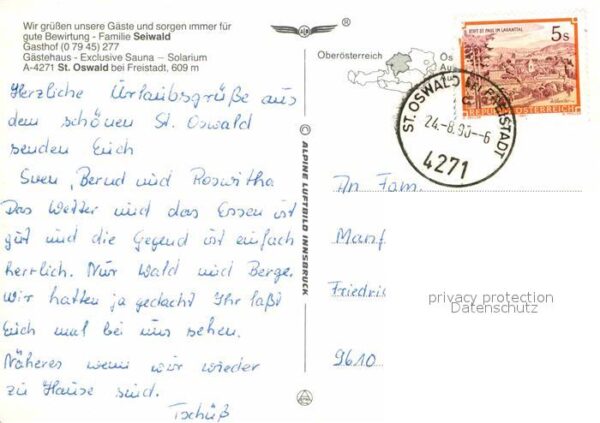 Wir grüßen unsere Gäste und sorgen immer für
gute Bewirtung - Familie Seiwald
Gasthof (0 79 45) 277
Gästehaus - Exclusive Sauna – Solarium
A-4271 St. Oswald bei Freistadt, 609 m
Herzliche Urlaubsgrüße aus
dem schönen St. Oswald
senden Euch
Sven, Bernd und Roswitha
Das Wetter und das Essen ist
gut und die Gegend ist einfach
herrlich. Nur Wald und Berge.
Wir hatten ja gedacht Ihr laßt
Euch mal bei uns sehen.
Näheres wenn wir wieder
zu Hause sind.
Tschüß
®
© ALPINE LUFTBILD INNSBRUCK
Oberösterreich
Os
STIFT ST. PAUL IM LAVANTTAL
5s
REPUBLIK ÖSTERREICH
ST. OSWALD BEI FREISTADT
24.-8.90--6
4271
An Fam.
Manf
Friedric
privacy protection
Datenschutz
9610